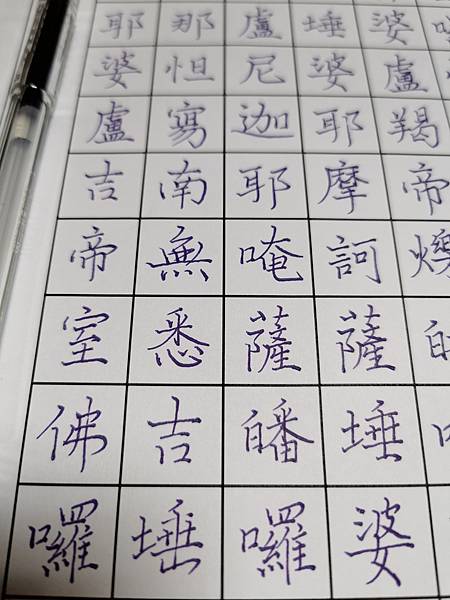 婆盧羯帝爍
埵婆耶摩訶薩埵婆
盧尼迦耶唵薩皤囉
那怛寫南無悉吉埵
耶婆盧吉帝室佛囉